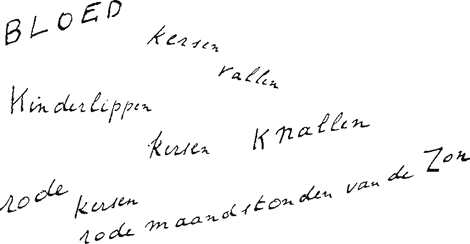 BLOED
kersen
vallen
Kinderlippen
kersen KNallen
rode kersen
rode maandstonden van de Zon